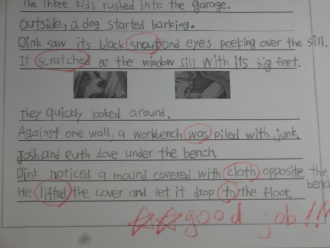 The three kids rushed into the garage.
Outside, a dog started barking.
Dink saw its black snout and eyes peeking over the sill.
It scratched at the window sill with its big feet.
They quickly looked around.
Against one wall, a workbench was piled with junk.
Josh and Ruth dove under the bench.
Dink noticed a mound covered with cloth opposite the
bench
He lifted the cover and let it drop to the floor.
good job!!!